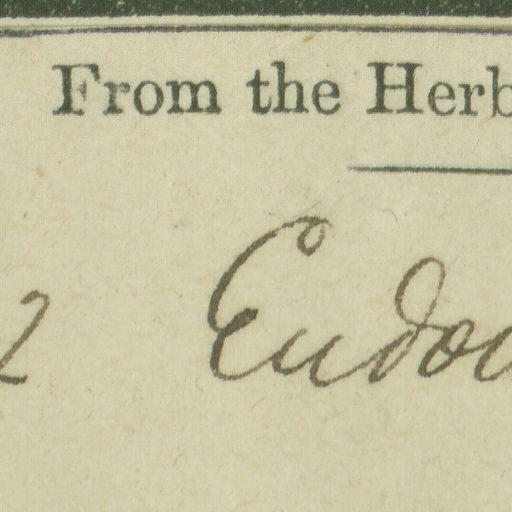 From the Herb
2 Endo